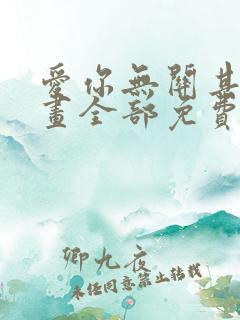 愛你無關其
畫全部免費
卿九夜
未經同意禁止轉載